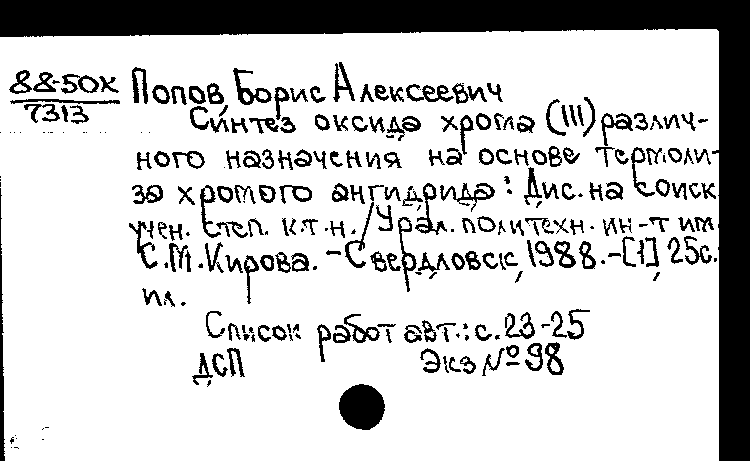 88-50К
7313
Попов, Борис Алексеевич
Синтез оксида хрома (III) различ-
ного назначения на основе термоли-
за хромого ангидрида: Дис. на соиск.
учен. степ. к.т.н. / Урал. политехн. ин-т им.
С.М.Кирова. - Свердловск, 1988. - [1], 25с.
ил.
Список работ авт.: с.23-25
ДСП Экз №98